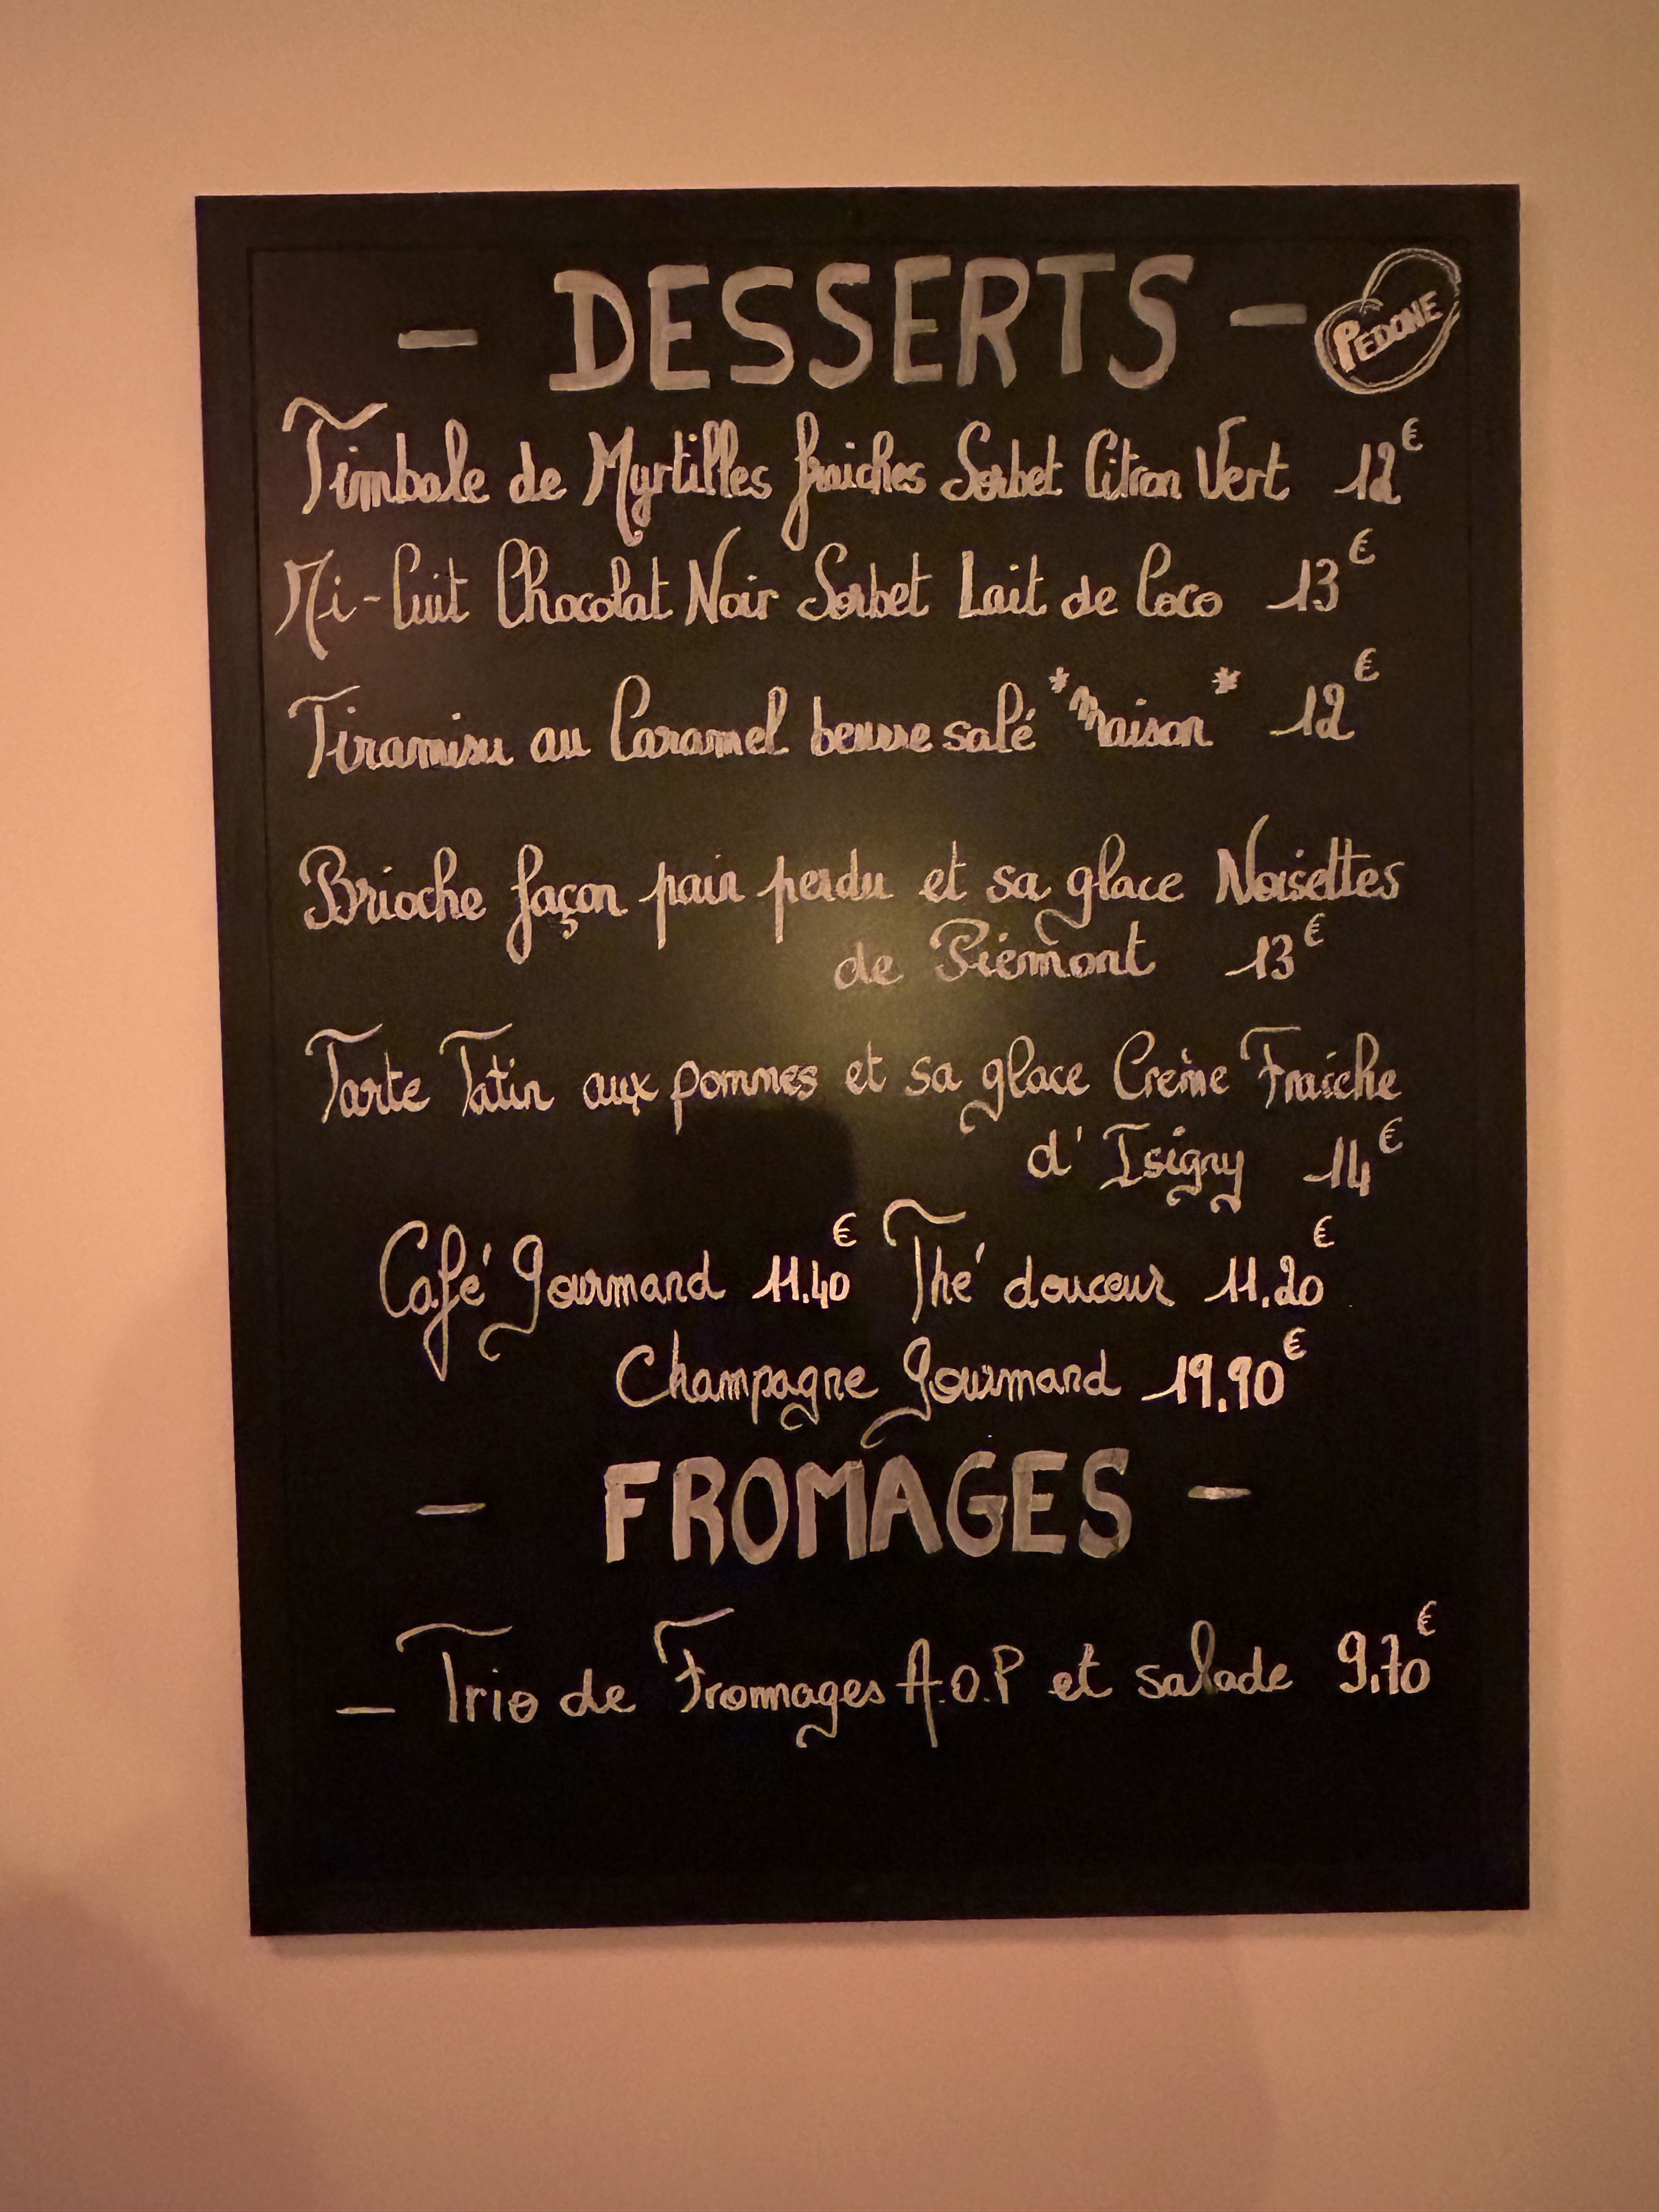 - DESSERTS -
PEDONE
Timbale de Myrtilles fraiches Sorbet Citron Vert 12€
Mi-Cuit Chocolat Noir Sorbet Lait de Coco 13€
Tiramisu au Caramel beurre salé *Maison* 12€
Brioche façon pain perdu et sa glace Noisettes
de Piémont 13€
Tarte Tatin aux pommes et sa glace Crème Fraîche
d'Isigny 14€
Café Gourmand 11.40€ Thé douceur 11.20€
Champagne Gourmand 19.90€
- FROMAGES -
- Trio de Fromages A.O.P et salade 9.70€